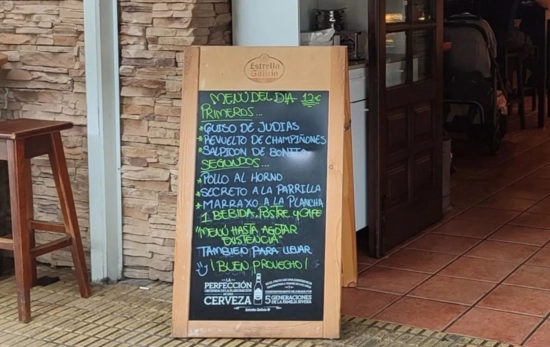 Estrella
Galicia
MENÚ DEL DIA 12€
PRIMEROS...
*GUISO DE JUDIAS
*REVUELTO DE CHAMPIÑONES
*SALPICON DE BONITO
SEGUNDOS...
*POLLO AL HORNO
*SECRETO A LA PARRILLA
*MARRAXO A LA PLANCHA
1 BEBIDA, POSTRE Y CAFE
"MENÚ HASTA AGOTAR
EXISTENCIA"
TAMBIEN PARA LLEVAR
¡BUEN PROVECHO!
LA
PERFECCIÓN
CERVEZA
5 GENERACIONES
DE LA FAMILIA RIVERA
Estrella Galicia